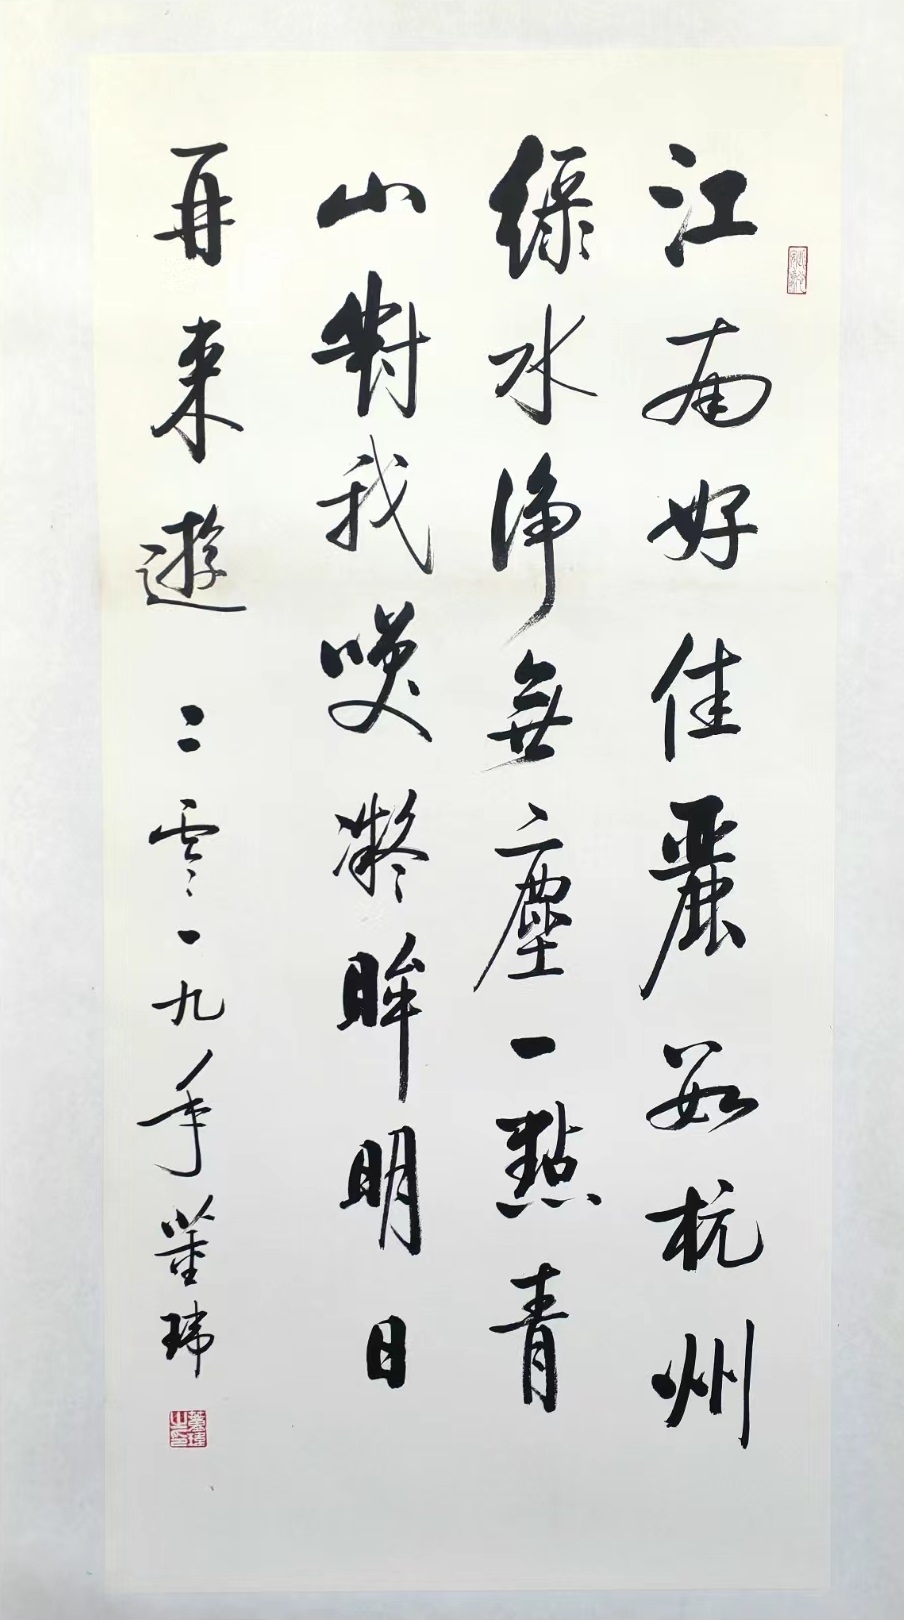 江南好佳麗數杭州
綠水淨無塵一點青
山對我㗛凝眸明日
再來遊 二零一九年 董瑋